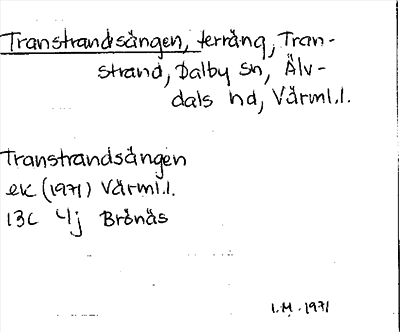 Transtrandsängen, terräng, Tran-
strand, Dalby sn, Älv-
dals hd, Värml.l.
Transtrandsängen
ek (1971) Värml.l.
13C 4j Brånäs
I.M. 1971